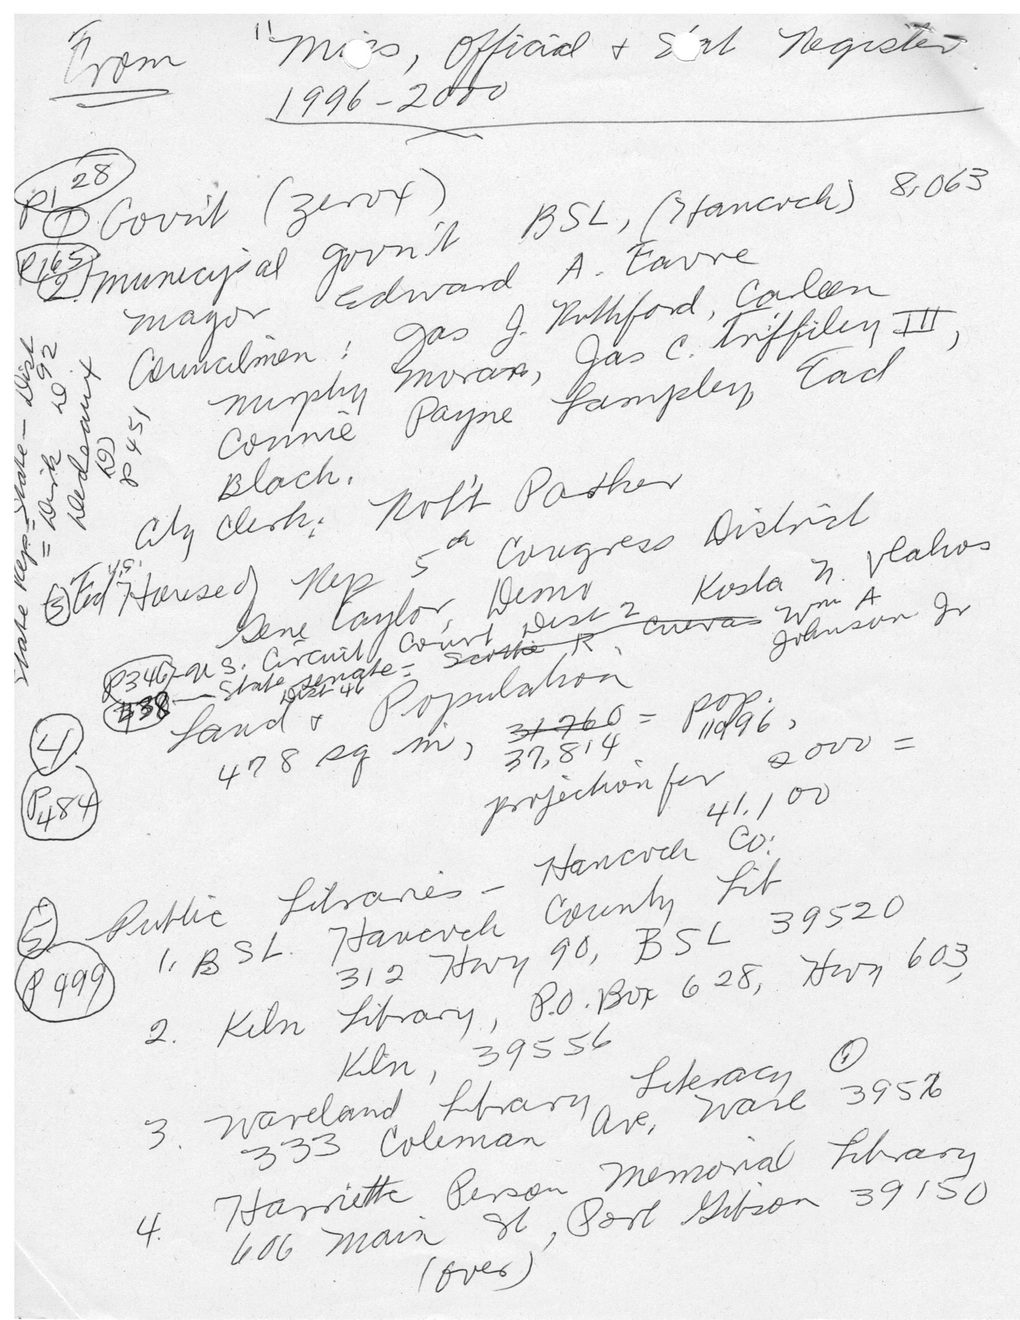 From "Miss, Official + Stat Register
1996-2000
P128
① Gov't (zerox)
P165
2. Municipal gov't BSL, (Hancock) 8,063
Mayor Edward A. Favre
Councilmen: Jas J. Ruthford, Carleen
Murphy Moran, Jas C. Triffiley III,
Connie Payne Lampley, Tad
Black.
City Clerk: Rob't Parker
③ Fed U.S. House of Rep 5th Congress District
Gene Taylor, Demo
P346 - U.S. Circuit Court Dist 2 Kosta N. Vlahos
P38 - State Senate = Scottie R Cuevas Wm A
Dist 46 Johnson Jr
State Rep = State - Dist
= Dirk D 92
Dedeaux
(D)
P 451
④ Land & Population
P484
478 sq mi, 31760 = pop.
37,814 1996,
projection for 2000 =
41,100
⑤ Public Libraries - Hancock Co:
P499
1. BSL. Hancock County Lib
312 Hwy 90, BSL 39520
2. Kiln Library, P.O. Box 628, Hwy 603,
Kiln, 39556
3. Waveland Library Literacy ①
333 Coleman Av, Wave 39576
4. Harriette Person Memorial Library
606 Main St, Port Gibson 39150
(over)